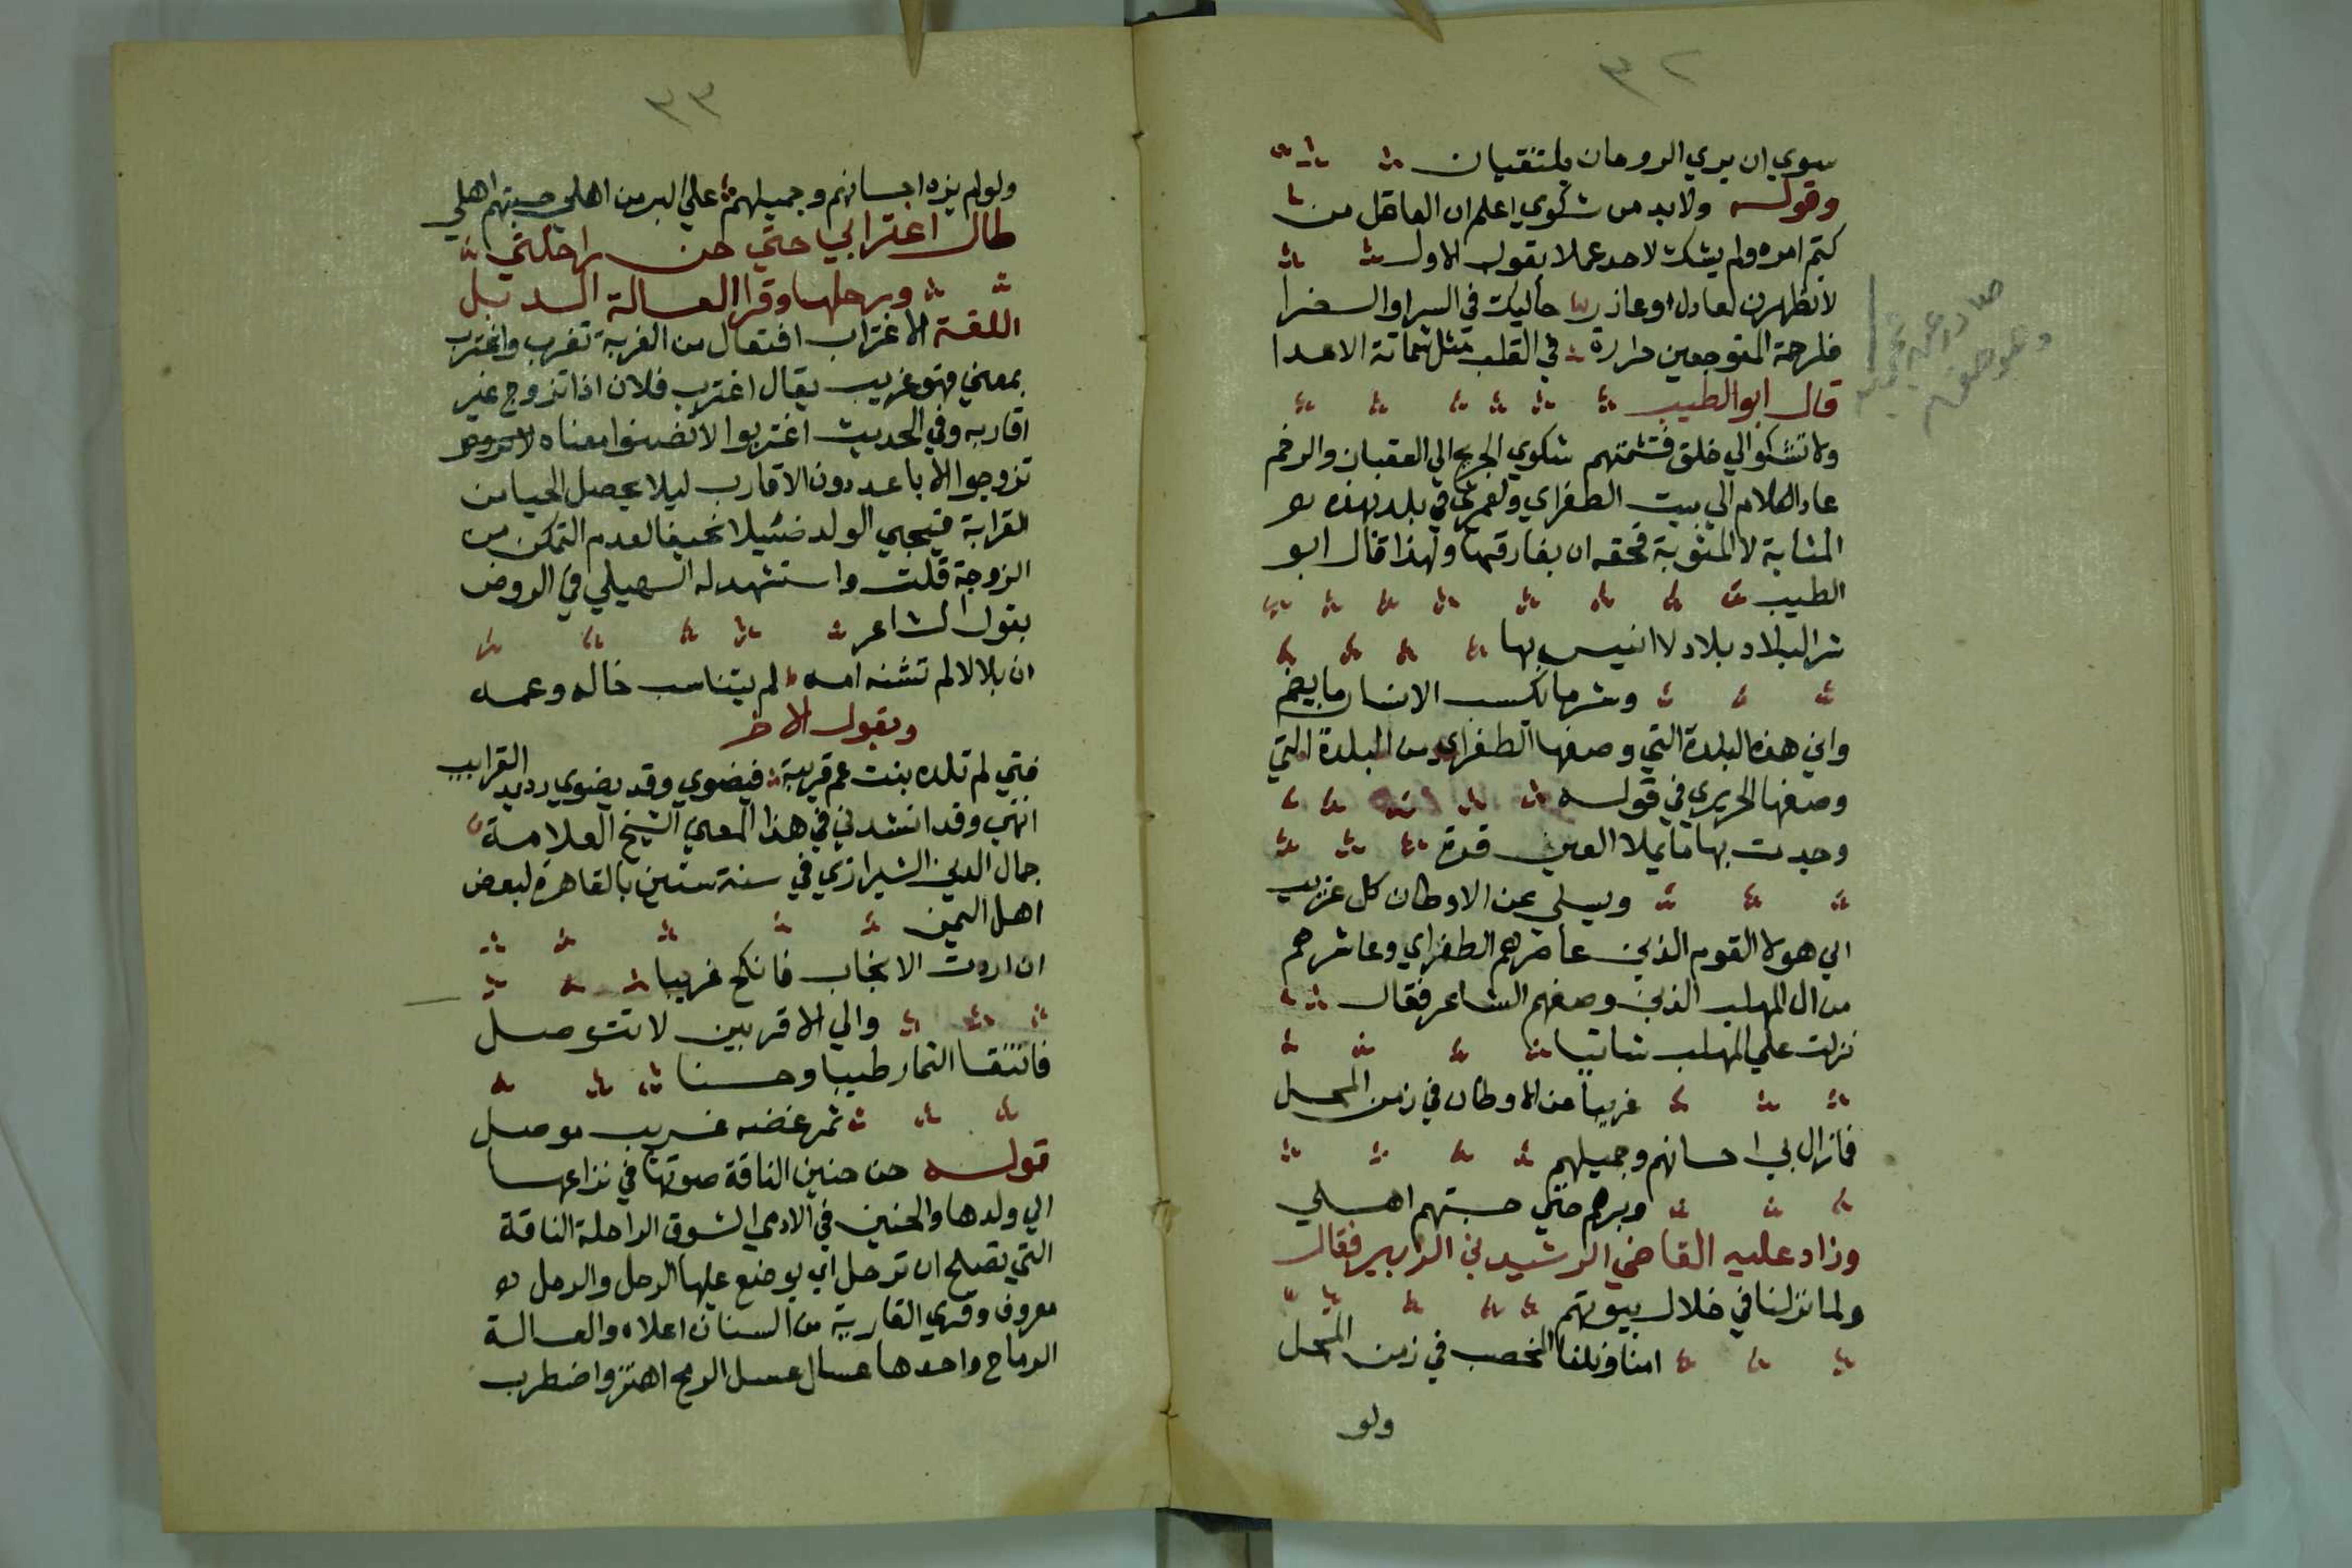 ٣٢
سوي ان يري الروحان يلتقيان
وقوله ولابد من شكوي اعلم ان العاقل من
كتم امره ولم يشك لاحد عملا بقول الاول
لا تظهرن لعاذل او عاذر حاليك في السرا والضرا
فلرحمة المتوجعين حرارة في القلب مثل شماتة الاعدا
قال ابو الطيب
ولا تشكوا الي خلق فتشمتهم شكوي الجريح الي العقبان والرخم
عاد الكلام الي بيت الطغراي ولعمري في بلد بهذه
المثابة لا المثوبة فحقه ان يفارقها ولهذا قال ابو
الطيب
شر البلاد بلاد لا انيس بها
وشر ما يكسب الانسان ما يضم
واين هذه البلدة التي وصفها الطغراي من البلدة التي
وصفها الحريري في قوله
وجدت بها ما يملا العين قرة
ويسلي عن الاوطان كل غريب
الي هولا القوم الذين عاصرهم الطغراي وعاشرهم
من ال المهلب الذين وصفهم الشاعر فقال
نزلت علي المهلب شاتيا
غريبا عن الاوطان في زمن المحل
فمازال بي احسانهم وجميلهم
وبرهم حتي حسبتهم اهلي
وزاد عليه القاضي الرشيد بن الزبير فقال
ولما نزلنا في خلال بيوتهم
امنا ونلنا الخصب في زمن المحل
ولو
٣٣
ولو لم يزد احسانهم وجميلهم علي البر من اهلي حسبتهم اهلي
طال اغترابي حتي حن راحلتي
ورحلها وقرا العسالة الذبل
اللغة الاغتراب افتعال من الغربة تغرب واغترب
بمعني فهو غريب يقال اغترب فلان اذا تزوج غير
اقاربه وفي الحديث اغتربوا لا تضووا معناه
تزوجوا الاباعد دون الاقارب ليلا يحصل الحيا من
القرابة فيجي الولد ضئيلا نحيفا لعدم التمكن من
الزوجة قلت واستشهد له السهيلي في الروض
بقول الشاعر
ان بلالا لم تشنه امه لم يتناسب خاله وعمه
وبقول الاخر
فتي لم تلده بنت عم قريبة فيضوي وقد يضوي رديد القرايب
انتهي وقد انشدني في هذا المعني الشيخ العلامة
جمال الدين الشيرازي في سنة ستين بالقاهرة لبعض
اهل اليمن
ان اردت الانجاب فانكح غريبا
والي الاقربين لا تتوصل
فانتقا الثمار طيبا وحسنا
ثمر غضه غريب موصل
قوله حن حنين الناقة صوتها في نزاعها
الي ولدها والحنين في الادمي الشوق الراحلة الناقة
التي تصلح ان ترحل اي يوضع عليها الرحل والرحل
معروف وقري القارية من السنان اعلاه والعسالة
الرماح واحدها عسال عسل الرمح اهتز واضطرب